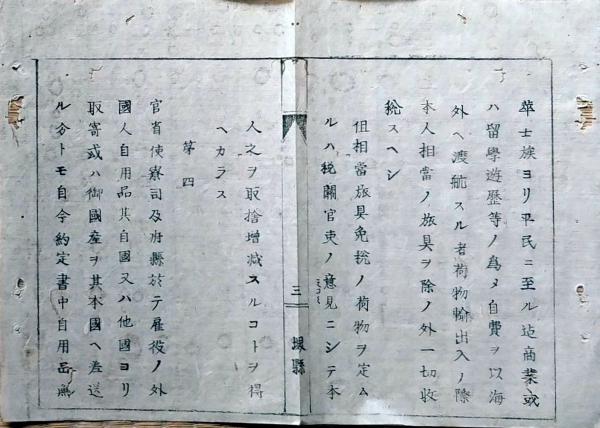 華士族ヨリ平民ニ至ル迠商業或
ハ留學遊歴等ノ爲メ自費ヲ以海
外ヘ渡航スル者荷物輸出入ノ際
本人相當ノ旅具ヲ除ノ外一切收
稅スヘシ
但相當旅具免稅ノ荷物ヲ定ム
ルハ税關官吏ノ意見ニシテ本
三
堺縣
人之ヲ取捨增减スルコトヲ得
ヘカラス
第四
官省使寮司及府縣於テ雇役ノ外
國人自用品其自國又ハ他國ヨリ
取寄或ハ御國産ヲ其本國ヘ差送
ル分トモ自今約定書中自用品無